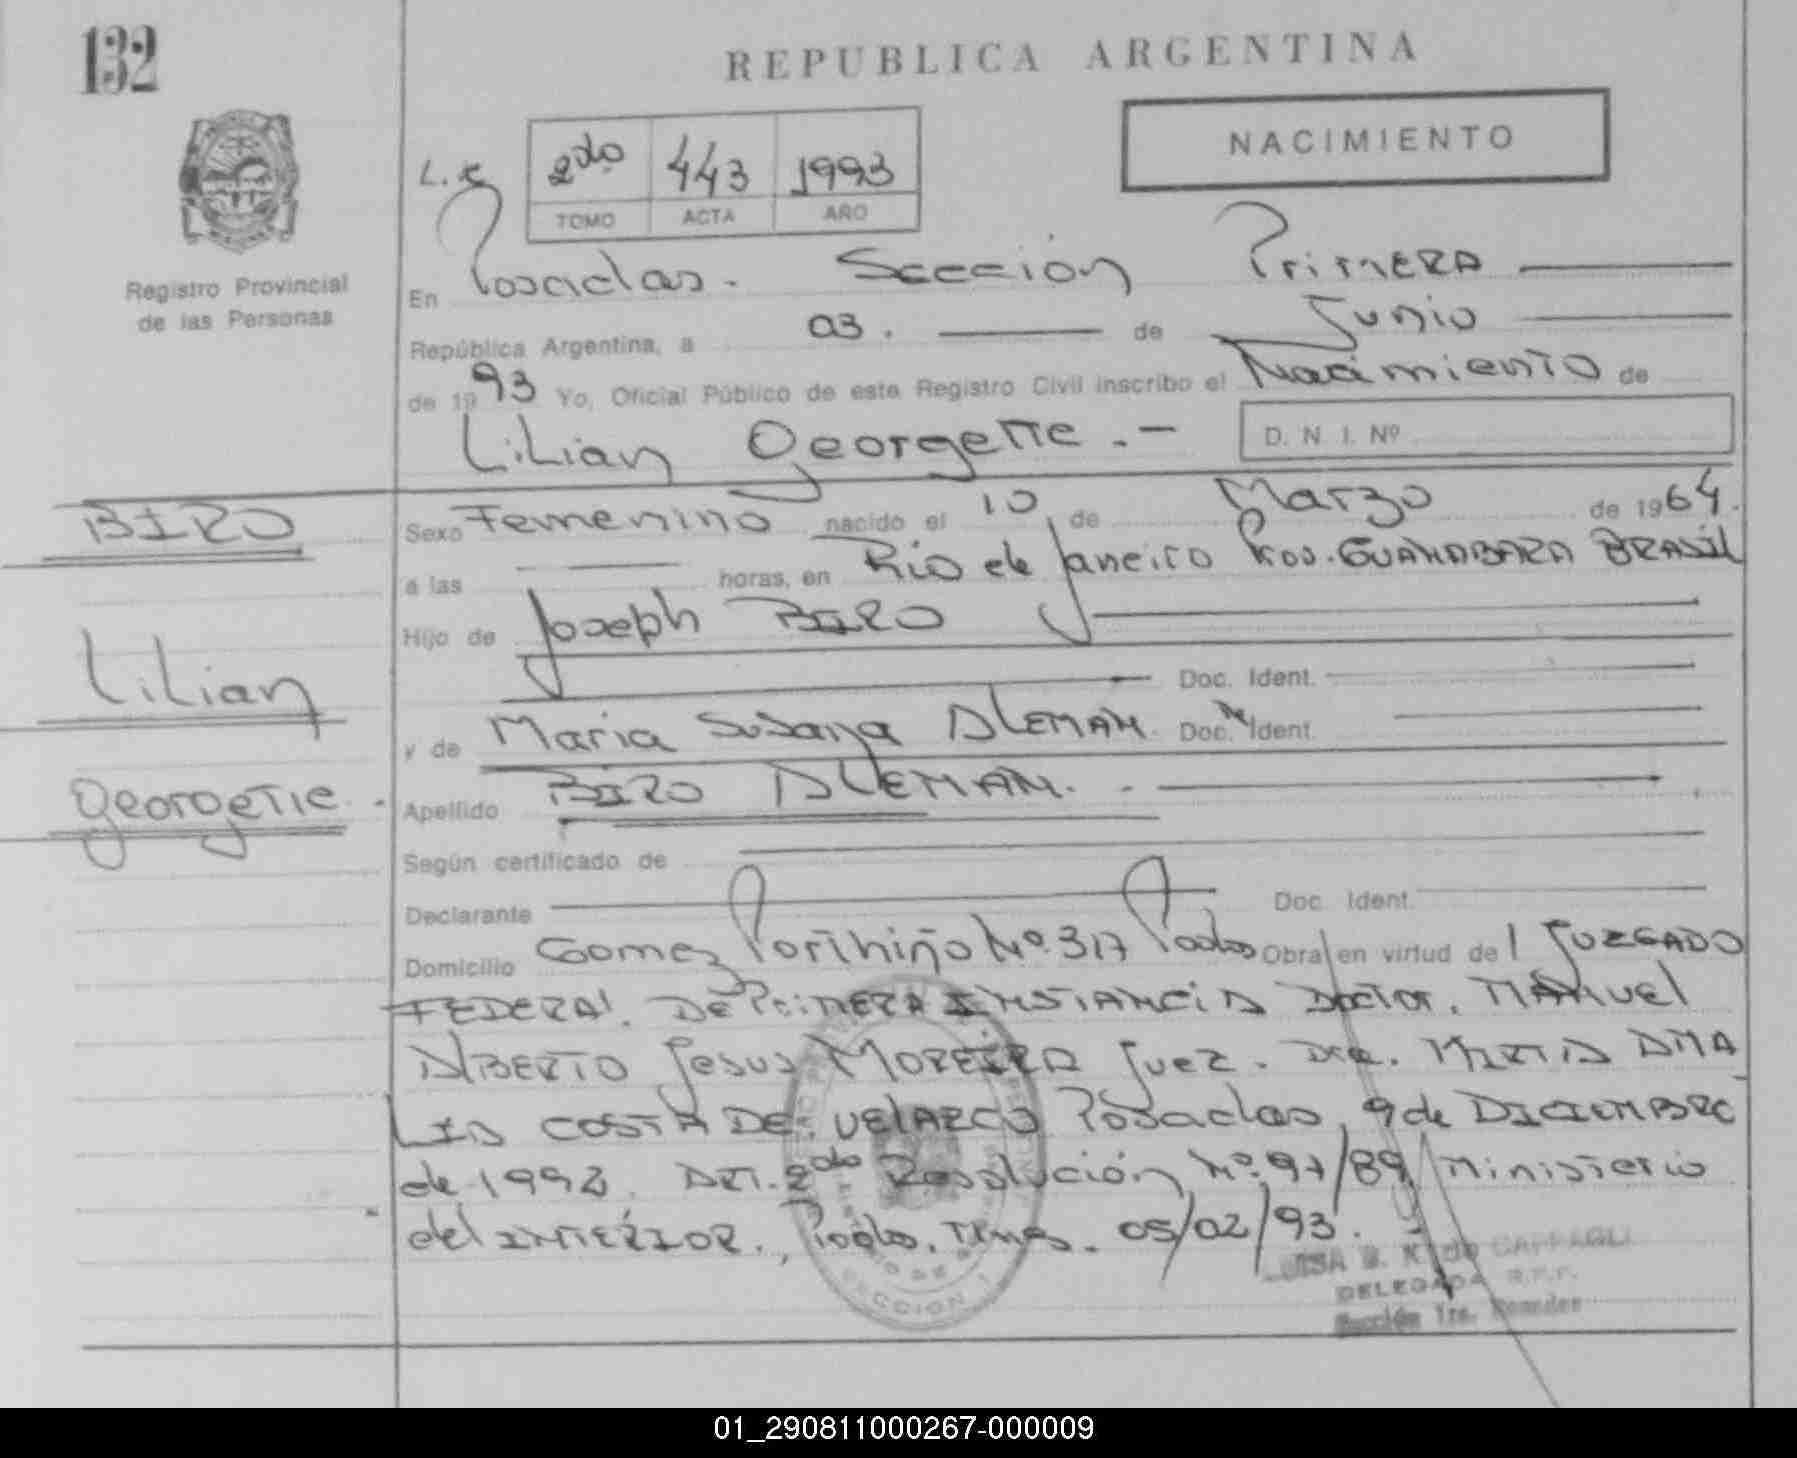 132
REPUBLICA ARGENTINA
NACIMIENTO
2do 443 1993
TOMO ACTA AÑO
Registro Provincial
de las Personas
En Posadas. Sección Primera
República Argentina, a 03. de Junio
de 1993 Yo, Oficial Público de este Registro Civil inscribo el Nacimiento de
Lilian Georgette.-
D. N. I. Nº
BIRO
Lilian
Georgette.
Sexo Femenino nacido el 10 de Marzo de 1964.
a las horas, en Rio de Janeiro Prov. GUANABARA BRASIL
Hijo de Joseph BIRO
Doc. Ident.
y de Maria Susana ALEMAN. Doc. Ident.
Apellido BIRO ALEMAN.
Según certificado de
Declarante Doc. Ident.
Domicilio Gomez Porthiño Nº 317 Obra en virtud del JUZGADO
FEDERAL. DE PRIMERA INSTANCIA Doctor. MANUEL
ALBERTO Jesus MOREIRA Juez. Dra. MIRTA AMA
LIA COSTA DE VELAZCO Posadas, 9 de DICIEMBRE
de 1992. ART. 2do Resolución Nº. 97/89 Ministerio
del INTERIOR. Mnes. 05/02/93.
DELEGADA R.P.P.
Sección 1ra. Posadas
SECCION 1
01_290811000267-000009